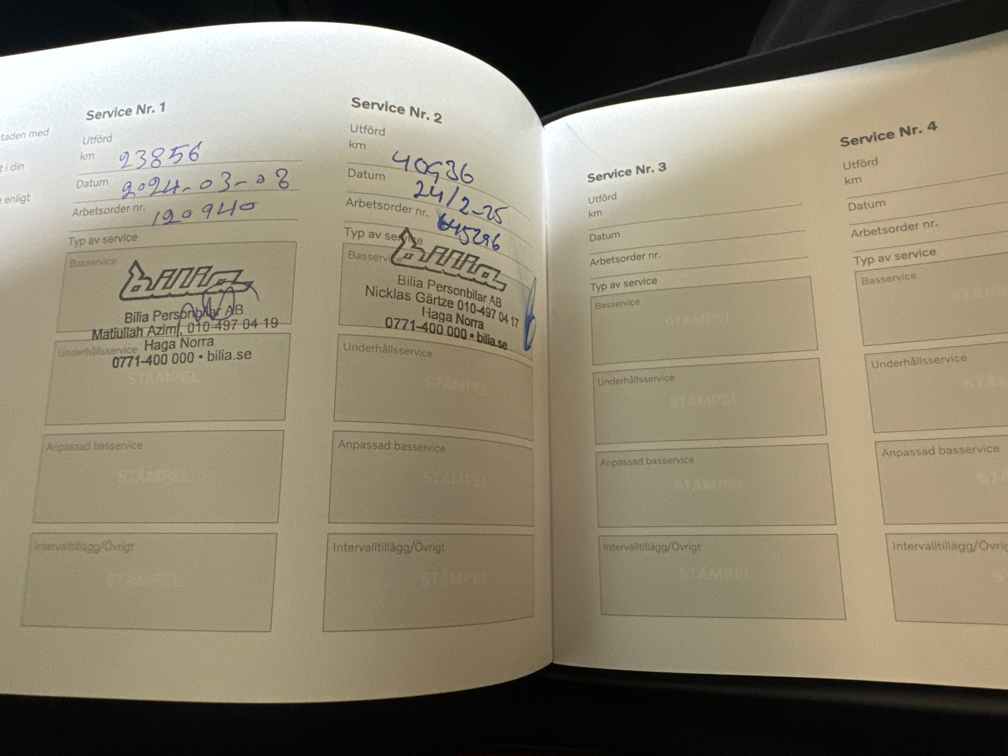 taden med
t i din
enligt
Service Nr. 1
Utförd
km 23856
Datum 2024-03-08
Arbetsorder nr. 120940
Typ av service
Basservice
bilia
Bilia Personbilar AB
Matiullah Azimi, 010-497 04 19
Haga Norra
0771-400 000 • bilia.se
Underhållsservice
STÄMPEL
Anpassad basservice
STÄMPEL
Intervalltillägg/Övrigt
STÄMPEL
Service Nr. 2
Utförd
km 40936
Datum 24/2-25
Arbetsorder nr. 645296
Typ av service
Basservice
bilia
Bilia Personbilar AB
Nicklas Gärtze 010-497 04 17
Haga Norra
0771-400 000 • bilia.se
Underhållsservice
STÄMPEL
Anpassad basservice
STÄMPEL
Intervalltillägg/Övrigt
STÄMPEL
Service Nr. 3
Utförd
km
Datum
Arbetsorder nr.
Typ av service
Basservice
STÄMPEL
Underhållsservice
STÄMPEL
Anpassad basservice
STÄMPEL
Intervalltillägg/Övrigt
STÄMPEL
Service Nr. 4
Utförd
km
Datum
Arbetsorder nr.
Typ av service
Basservice
STÄM
Underhållsservice
STÄ
Anpassad basservice
STÄ
Intervalltillägg/Övrig